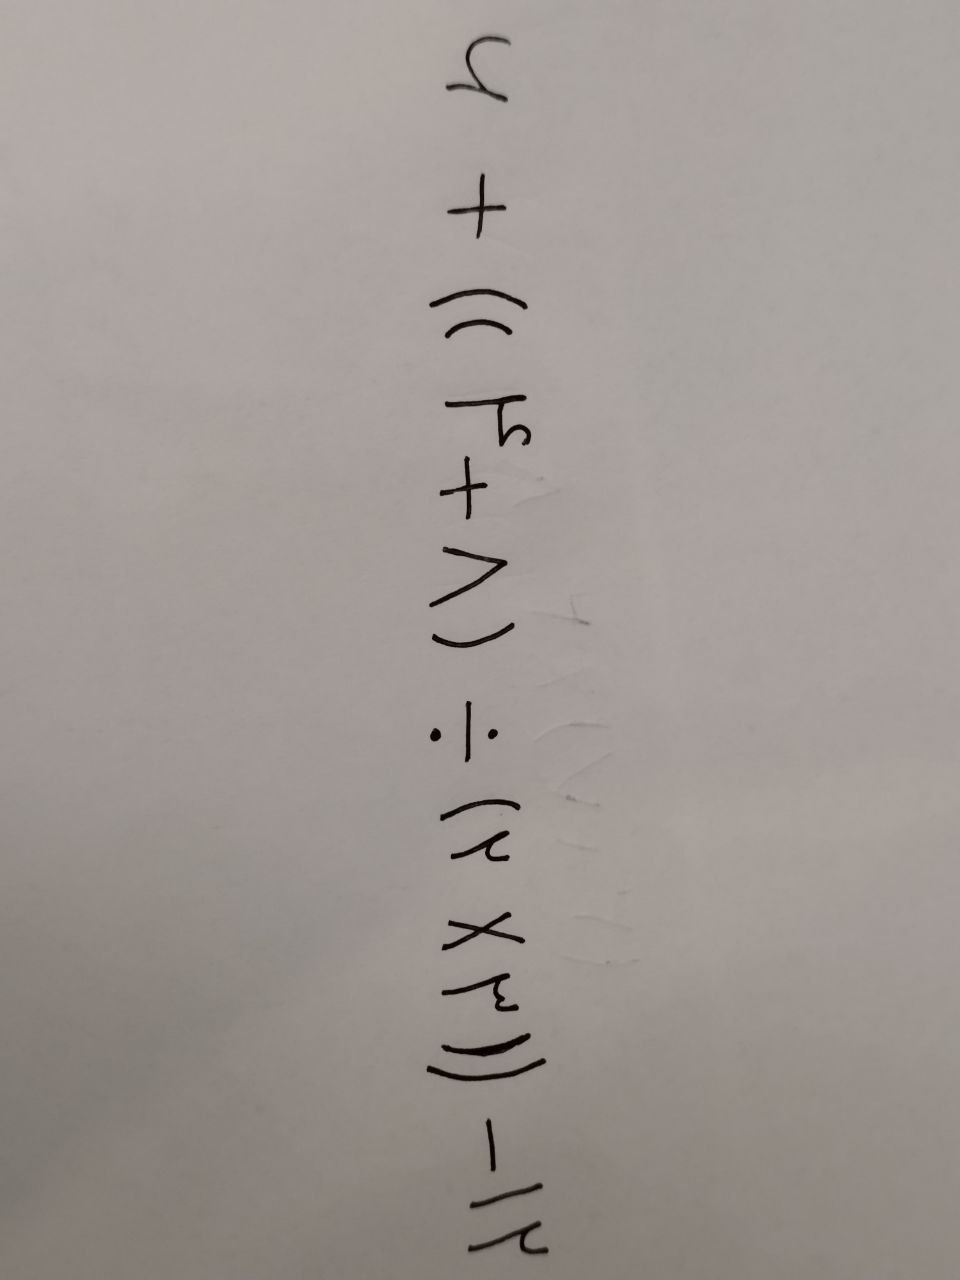 ۶ + (( ۴ + ۸ ) ÷ ( ۲ × ۳ )) - ۱۲